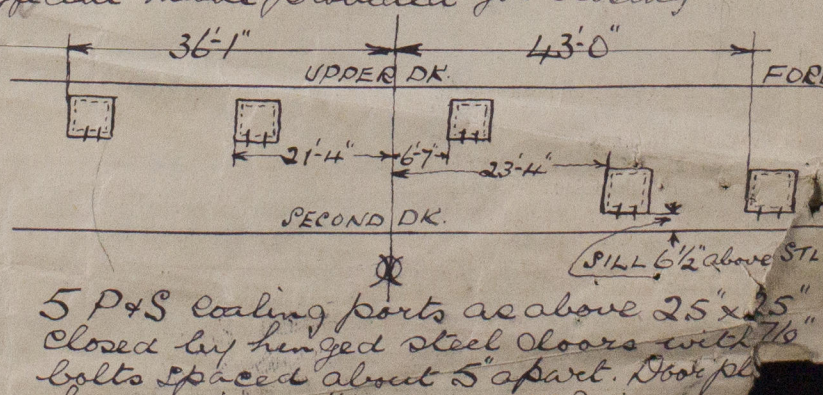 36'-1" 43'-0"
UPPER DK.
21'-4" 6'-7"
23'-4"
SECOND DK.
SILL 6½" above STL
5 P&S coaling ports as above 25" x 25"
closed by hinged steel doors with 7/8"
bolts spaced about 5" apart. Door pl